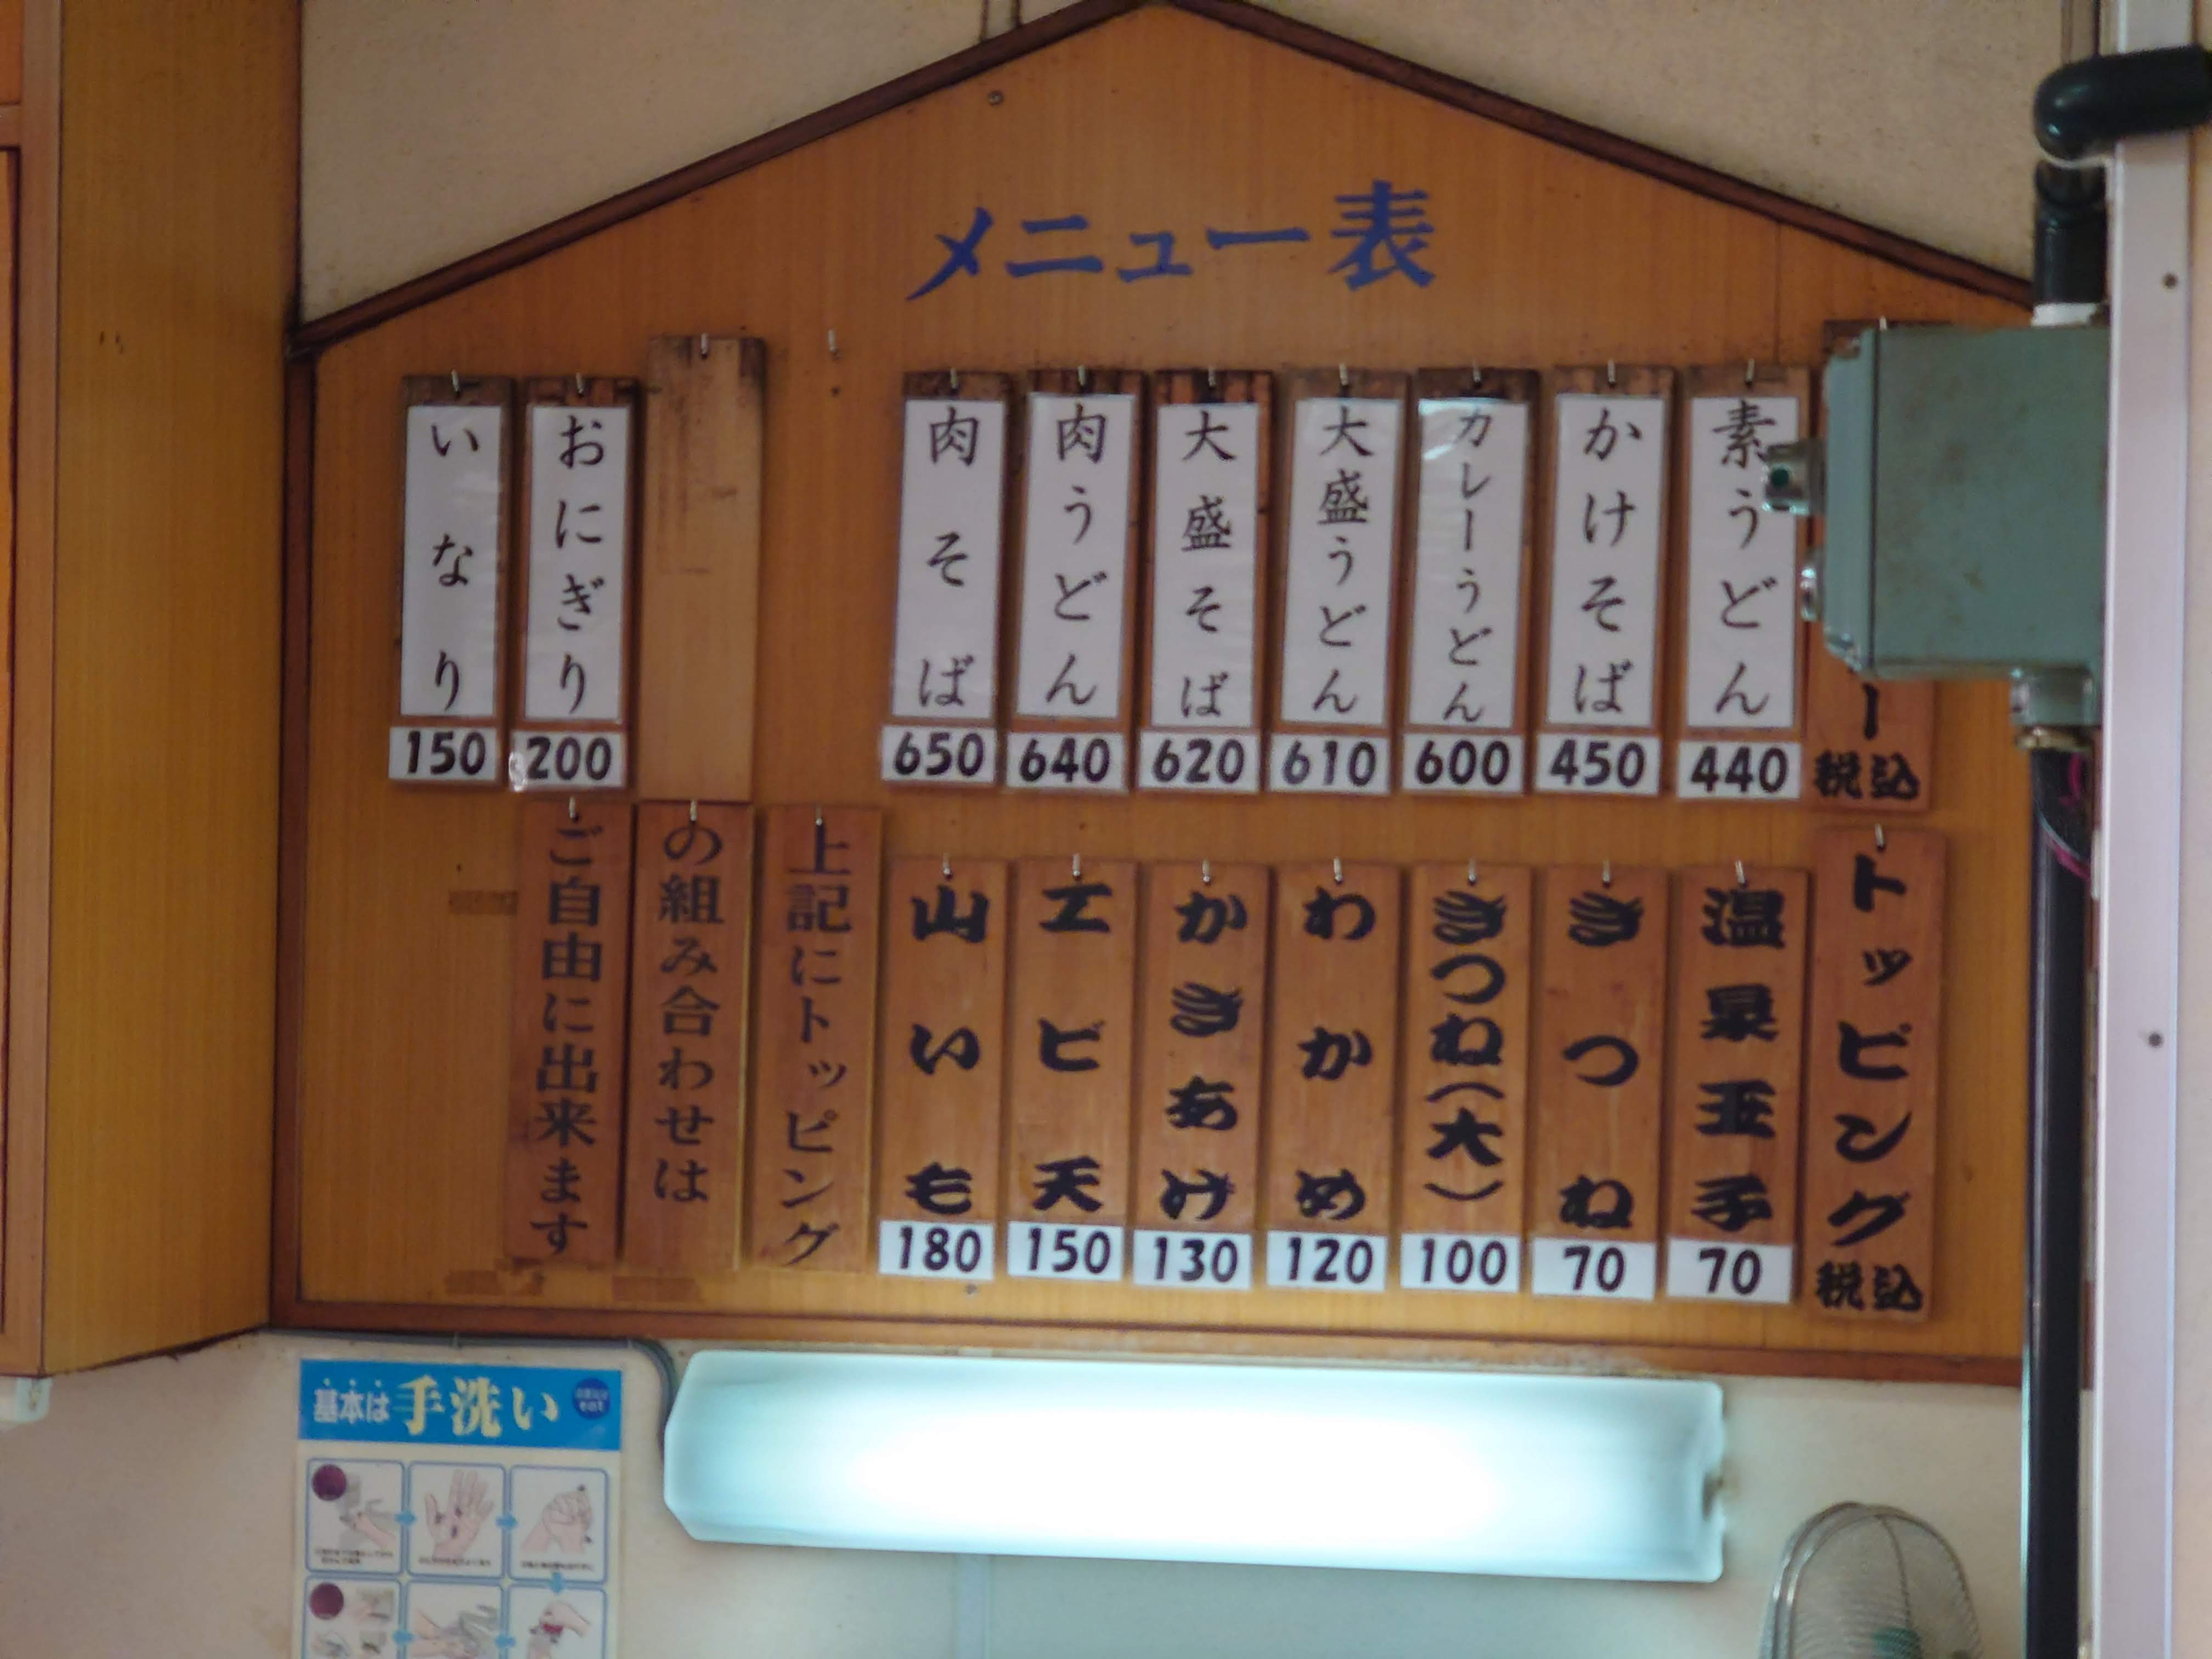 メニュー表
ー
税込
素うどん
440
かけそば
450
カレーうどん
600
大盛うどん
610
大盛そば
620
肉うどん
640
肉そば
650
おにぎり
200
いなり
150
トッピング
税込
温泉玉子
70
きつね
70
きつね(大)
100
わかめ
120
かきあげ
130
エビ天
150
山いも
180
上記にトッピング
の組み合わせは
ご自由に出来ます
基本は手洗い